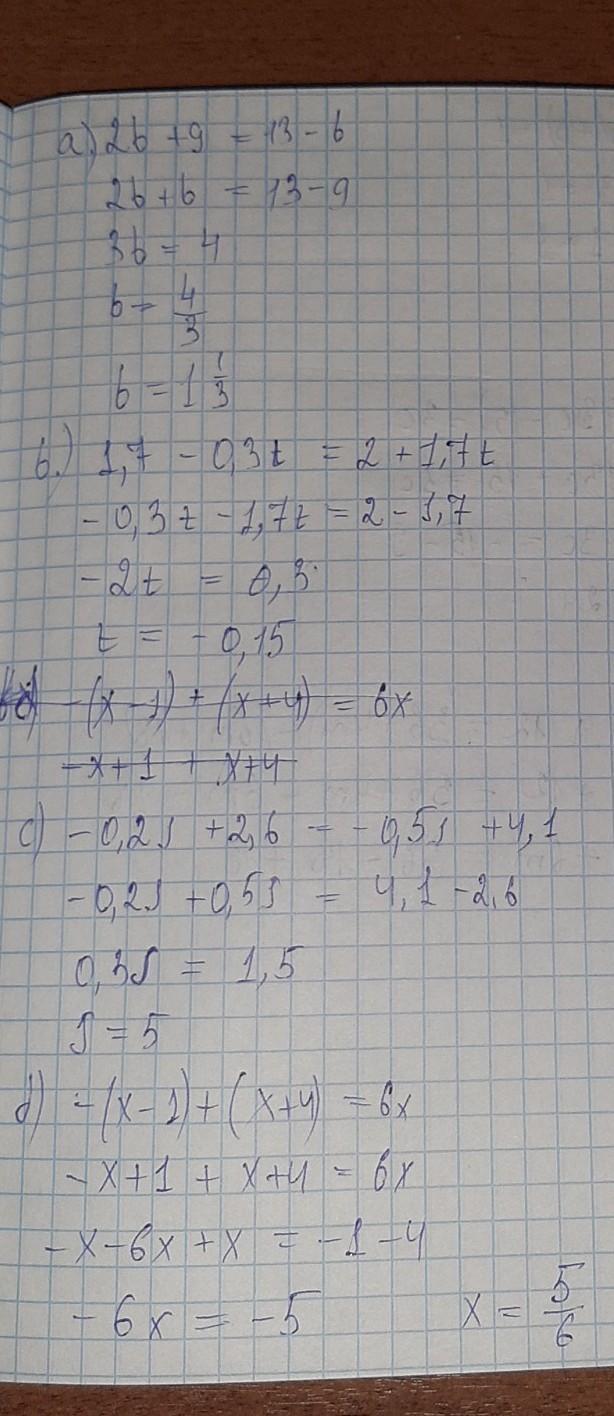 a) 2b + 9 = 13 - b
2b + b = 13 - 9
3b = 4
b = 4/3
b = 1 1/3
b.) 1,7 - 0,3t = 2 + 1,7t
- 0,3t - 1,7t = 2 - 1,7
- 2t = 0,3
t = - 0,15
-(x - 1) + (x + 4) = 6x
-x + 1 + x + 4
c) - 0,2s + 2,6 = - 0,5s + 4,1
- 0,2s + 0,5s = 4,1 - 2,6
0,3s = 1,5
s = 5
d) -(x - 1) + (x + 4) = 6x
- x + 1 + x + 4 = 6x
- x - 6x + x = - 1 - 4
- 6x = - 5 x = 5/6